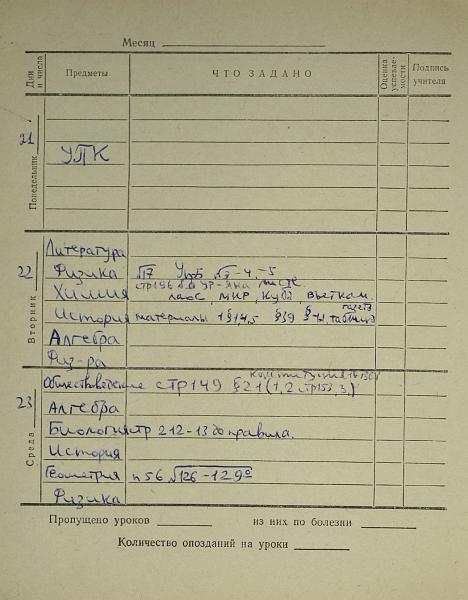 Месяц
Дни и числа Предметы ЧТО ЗАДАНО Оценка успеваемости Подпись учителя
Понедельник 21
УПК
Вторник 22
Литература
Физика §17 Упр5 -4, -5
стр196
Химия Лаос, МНР, Куба, Вьетнам.
газета
История материалы §39 таблица
Алгебра
Физ-ра
Среда 23
Обществоведение стр149 §21 (1,2 стр153 3,)
Алгебра
Биология стр 212-13 до правила.
История
Геометрия п56 126-129
Физика
Пропущено уроков из них по болезни
Количество опозданий на уроки